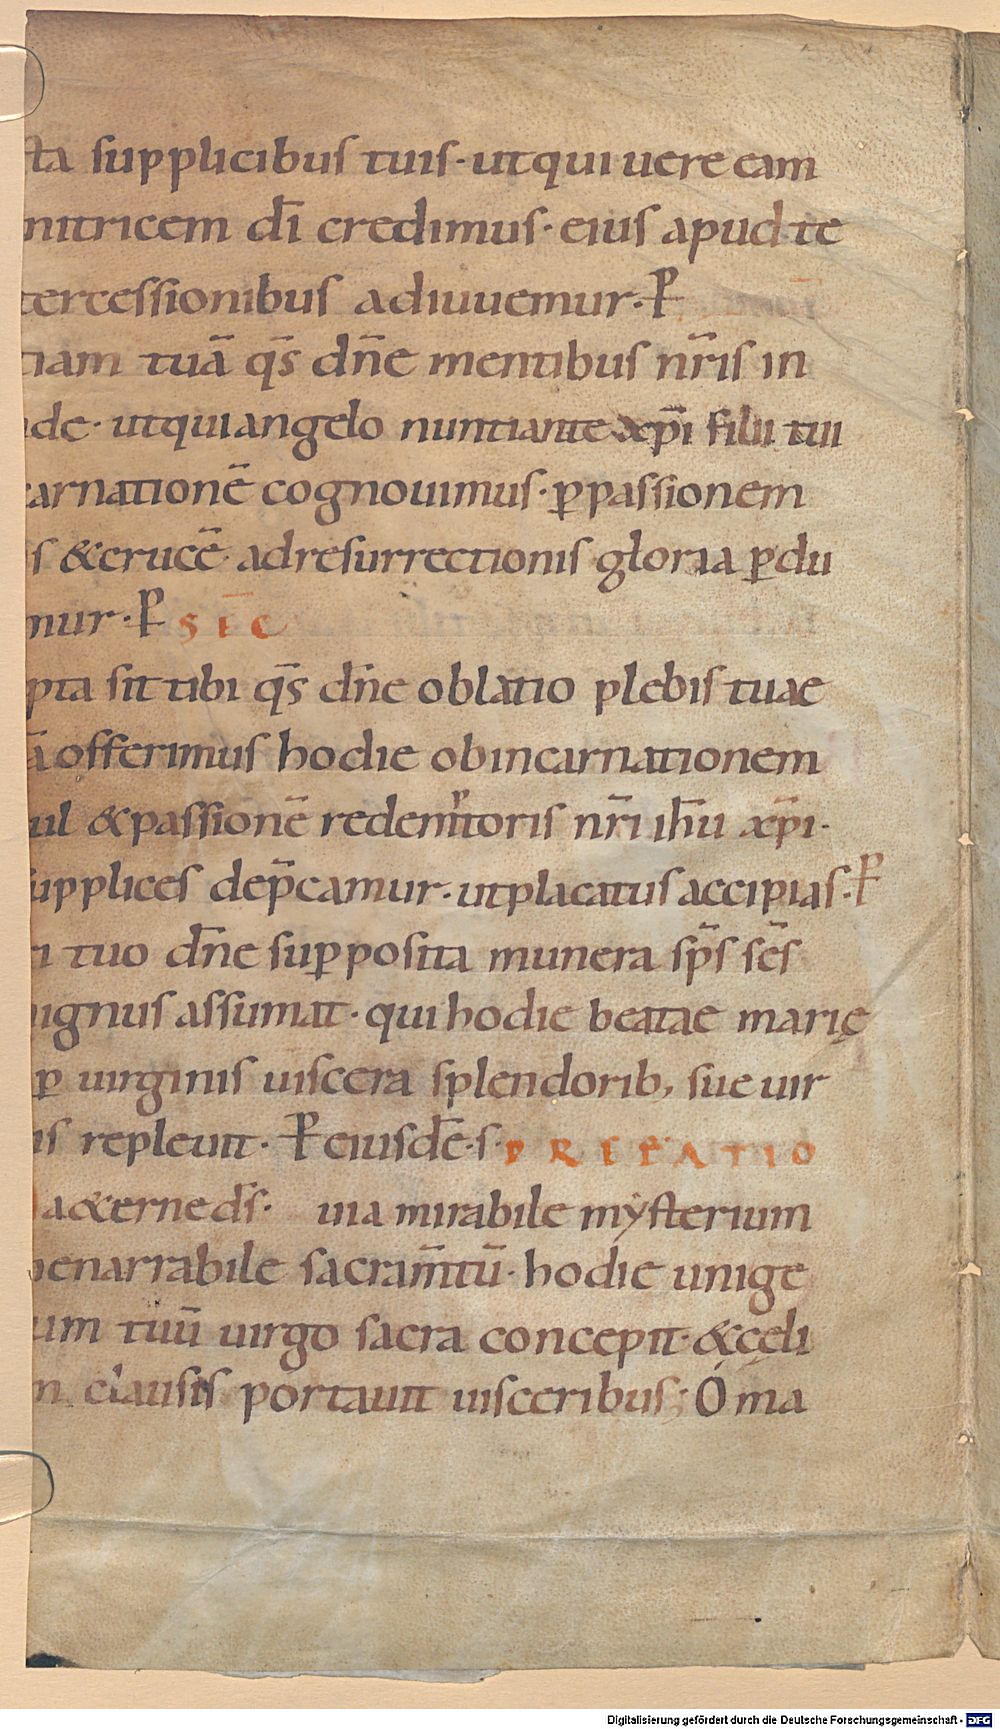 sta supplicibus tuis · ut qui uere eam
nitricem dī credimus · eius apud te
tercessionibus adiuuemur · P̄
tiam tuā q̄s dn̄e mentibus nr̄is in
de · ut qui angelo nuntiante xp̄i filii tui
carnationē cognouimus · ꝑ passionem
s &crucē · ad resurrectionis gloria ꝑdu
mur · P̄ SEC̄
pta sit tibi q̄s dn̄e oblatio plebis tuae
ā offerimus hodie ob incarnationem
ul &passionē redemptoris nr̄i ih̄u xp̄i ·
supplices dep̄camur · ut placatus accipias · P̄
ri tuo dn̄e superposita munera sp̄s sc̄s
nignus assumat · qui hodie beatae marię
ꝑ uirginis uiscera splendorib; sue uir
is repleuit · P̄ eiusdē · s · PREFATIO
a &erne ds̄ · uia mirabile mẏsterium
nenarrabile sacram̄tū · hodie unigē
um tuū uirgo sacra concepit · &cęli
n clausis portauit uisceribus · O ma
Digitalisierung gefördert durch die Deutsche Forschungsgemeinschaft - DFG